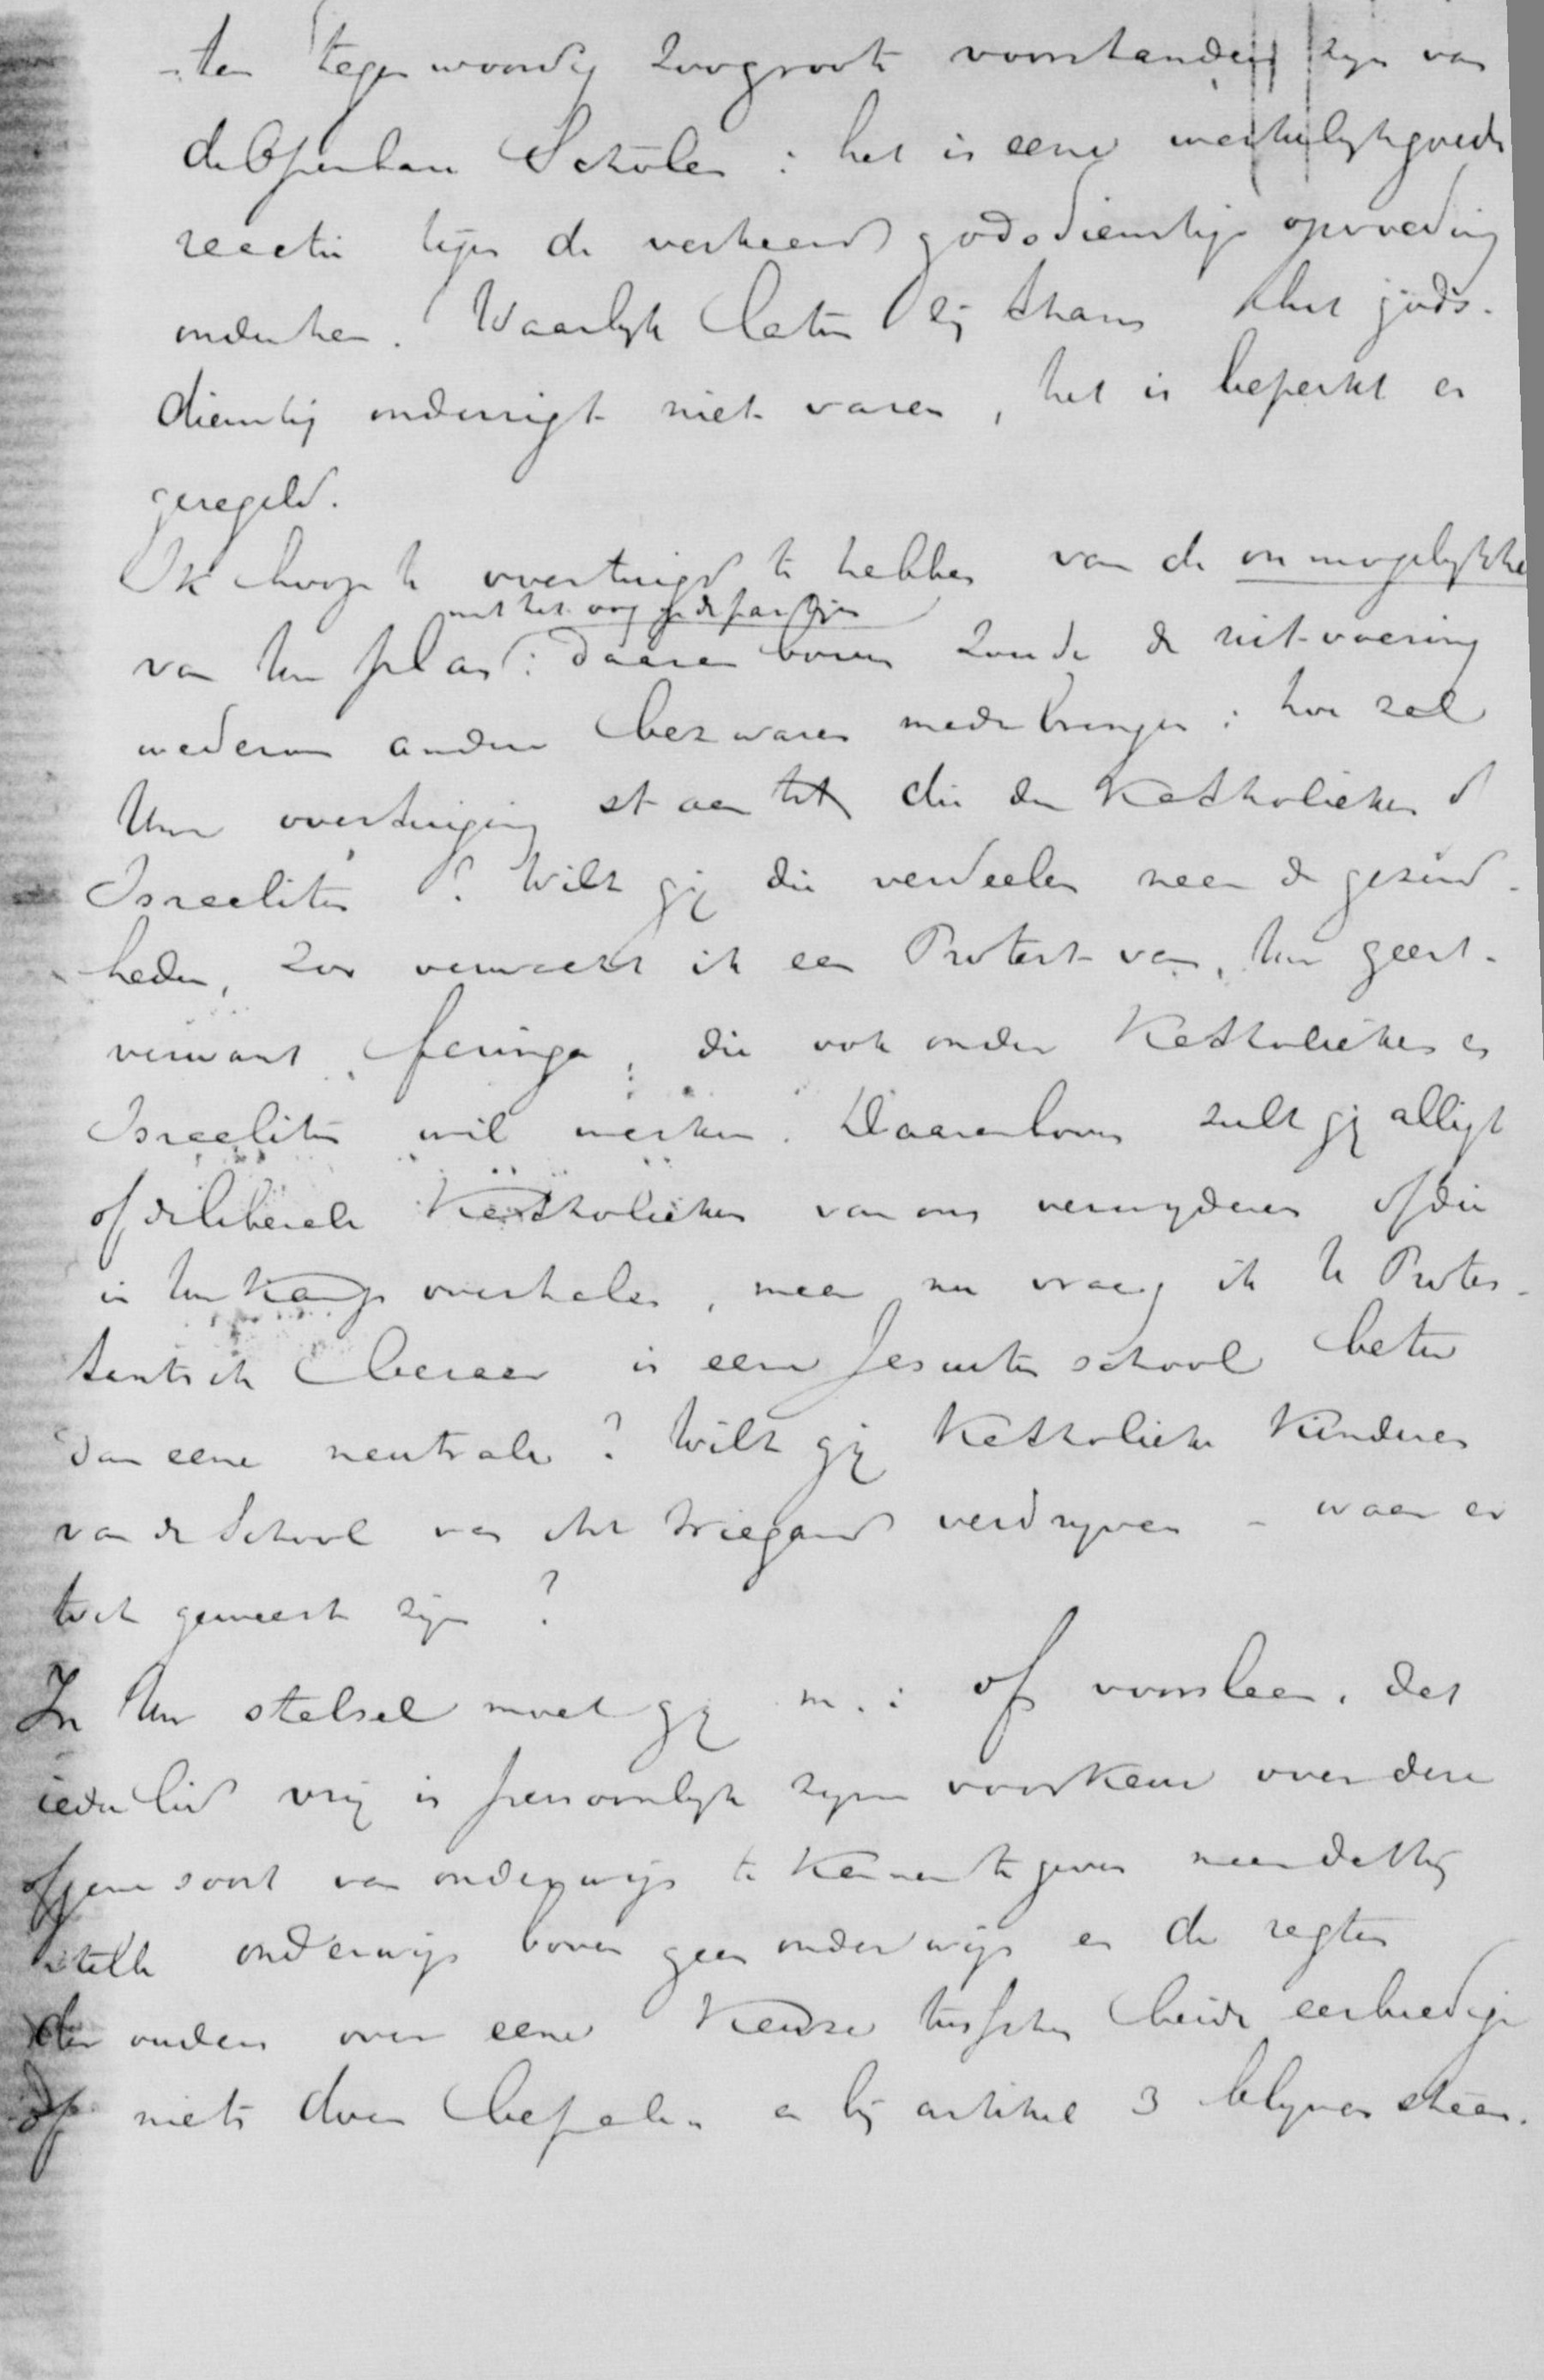 -ten tegenwoordig zoogroote voorstanders zyn van
de Openbare Scholen: het is eene werkelyk goede
reactie tegen de verkeerd godsdienstige opvoeding
onder hen. Waarlyk laten zij thans het gods-
dienstig onderrigt niet varen, het is beperkt en
geregeld.
Ik hoop U overtuigd te hebben van de onmogelykhe
met het oog op de partijen
van Uw plan: daarenboven zoude de uitvoering
wederom andere bezwaren medebrengen: hoe zal
Uwe overtuiging staan tot die der Katholieken of
Israeliten? Wilt gij die verdeelen naar de gezind-
heden, zoo verwacht ik een Protest van Uw geest-
verwant Feringa, die ook onder Katholieken en
Israeliten wil werken. Daarenboven zult gij alligt
of de liberale Katholieken van ons verwyderen of die
in Uw kamp overhalen, maar nu vraag ik U Protes-
tantsch leeraar is eene Jesuiten school beter
dan eene neutrale? Wilt gij Katholieke Kinderen
van de School van het verdryven - waar er
toch geweest zyn?
In Uw stelsel moet gij m.i. of voorslaan, dat
ieder lid vrij is persoonlyk zyne voorkeur over deze
of gene soort van onderwijs te kennen te geven maar dat hij
stelle onderwijs boven geen onderwijs en de regten
der ouders over eene Keuze tusschen beide eerbiedige
Of niets doen bepalen en bij artikel 3 blyven staan.